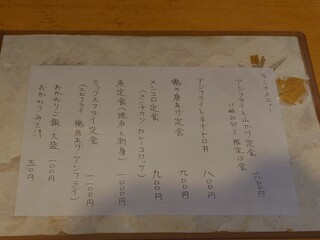 ランチメニュー
アジフライと山かけ定食 八〇〇円
アジフライとネギトロ丼 八〇〇円
鶏の唐あげ定食 九〇〇円
メンコロ定食 九〇〇円
(メンチカツ・カレーコロッケ)
魚定食(焼魚と刺身) 一〇〇〇円
ミックスフライ定食 一一〇〇円
(エビフライ 鶏唐あげ・アジフライ)
おかわりご飯、大盛 一〇〇円
おかわりみそ汁 五〇円